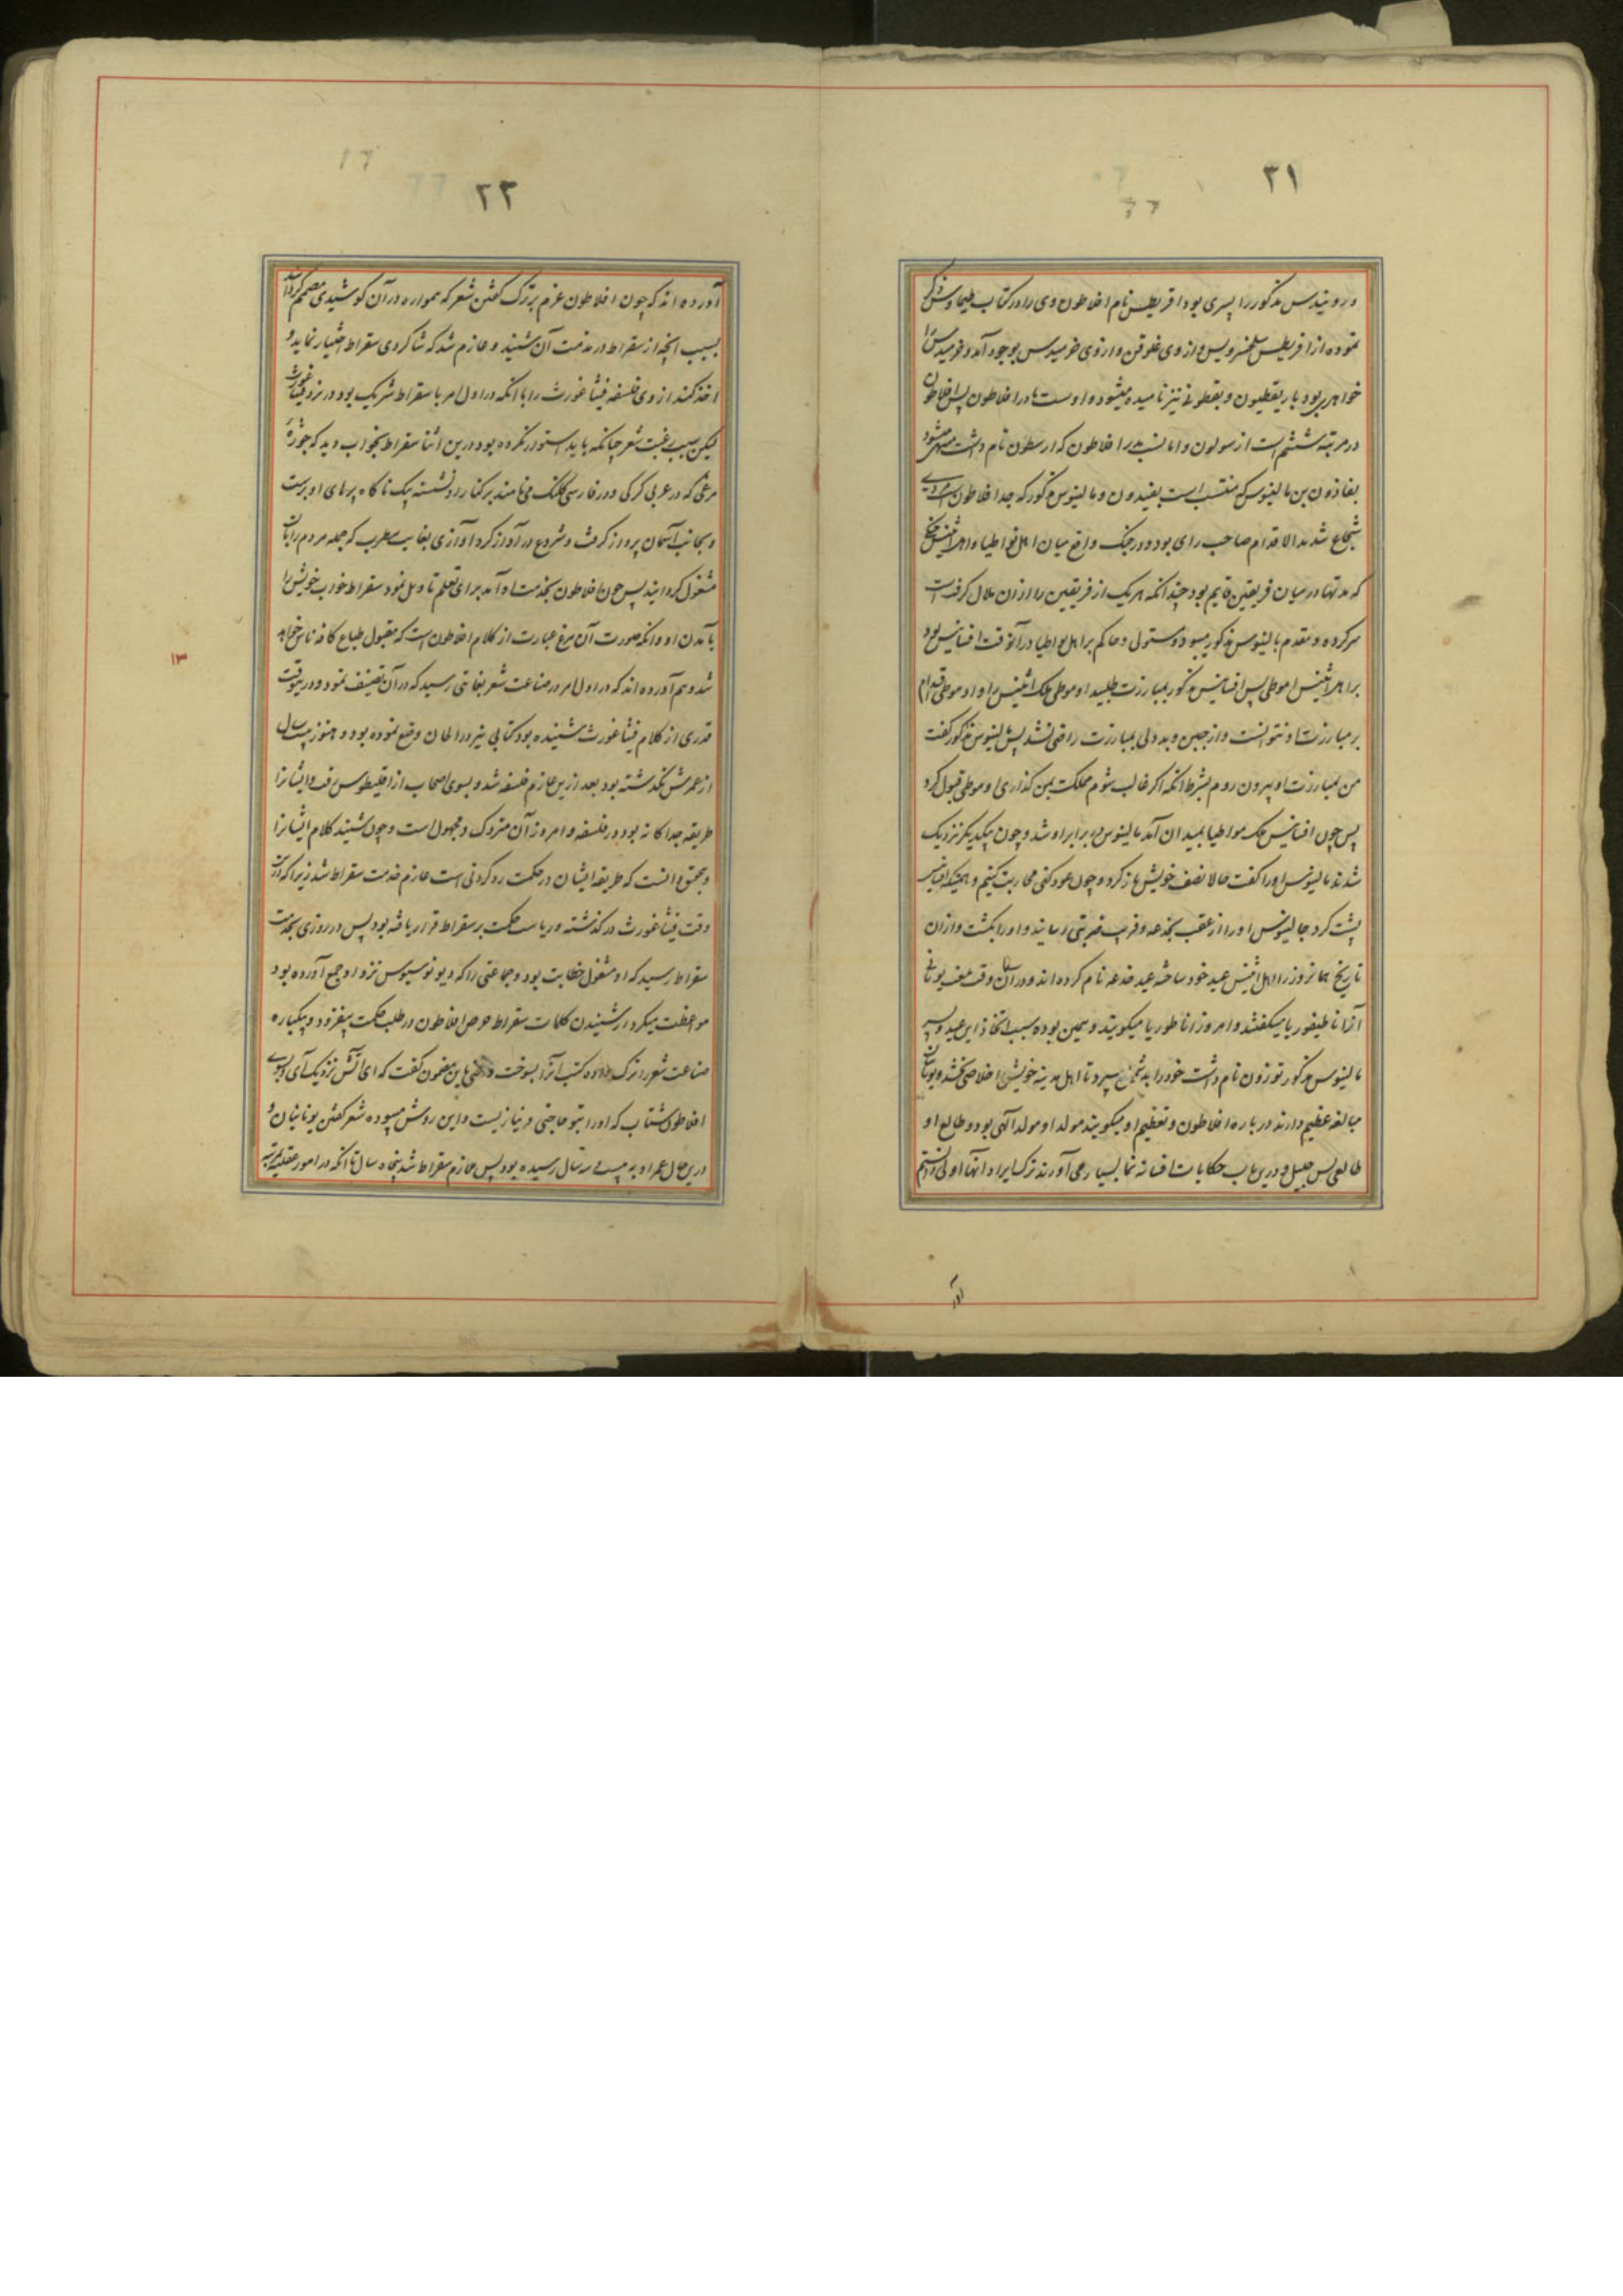 ۲۱
دروبیندس مذکور را پسری بود اقریطس نام افلاطون وی را در کتاب طیماوس ذکر
نموده از اقریطس سلخسرویس و از وی غلوقن و از وی خرمیدس بوجود آمد و خرمیدس را
خواهری بود باریقطیون و بقطونی نیز نامیده میشود و اوست مادر افلاطون پس افلاطون
در مرتبه ششم است از سولون و اما نسب پدر افلاطون که ارسطون نام داشت منتهی میشود
بفاذون بن مالینوس که منتسب است بفیدون و مالینوس مذکور که جد افلاطون است مردی
شجاع شدید الاقدام صاحب رای بود و در جنگ واقع میان اهل بواطیا و اهل اثینس جنگی
که مدتها در میان فریقین قایم بود چندانکه هر یک از فریقین را از آن ملال گرفته است
سرکرده و مقدم مالینوس مذکور میبود و مستولی و حاکم بر اهل بواطیا در آنوقت افسانیس بود
بر اهل اثینس اموطی پس افسانیس مذکور بمبارزت طلبید او موطی ملک اثینس را و او موطی اقدام
بر مبارزت او نتوانست و از جبن و بددلی بمبارزت راضی نشد پس مالینوس مذکور گفت
من بمبارزت او بیرون روم بشرط آنکه اگر غالب شوم مملکت بمن گذاری او موطی قبول کرد
پس چون افسانیس ملک بواطیا بمیدان آمد مالینوس در برابر او شد و چون بیکدیگر نزدیک
شدند مالینوس او را گفت حالا نصف خویش باز گرد و چون عود کنی محاربت کنیم و همینکه افسانیس
پشت کرد مالینوس او را از عقب بخدعه و فریب ضربتی رسانید و او را بکشت و از آن
تاریخ همانروز را اهل اثینس عید خود ساخته عید خدعه نام کرده اند و در آن وقت بلغت یونانی
آنرا ناطیفوریا میگفتند و امروز اناطوریا میگویند و همین بوده سبب اتخاذ این عید و پسر
مالینوس مذکور توزون نام داشت خود را بدشمن سپرد تا اهل مدینه خویش اخلاصی بخشد و یونانیان
مبالغه عظیم دارند درباره افلاطون و تعظیم او میگویند مولد او مولد الهی بود و طالع او
طالعی بس جلیل و درین باب حکایات افسانه نما بسیار می آورند ترک ایراد آنها اولی دانستیم
آور
۲۲
آورده اند که چون افلاطون عزم بر ترک گفتن شعر که همواره در آن کوشیدی مصمم گردانید
بسبب آنچه از سقراط در مذمت آن شنید و عازم شد که شاگردی سقراط اختیار نماید و
اخذ کند از وی فلسفه فیثاغورث را با آنکه در اول امر با سقراط شریک بود در نزد فیثاغورث
لیکن بسبب رغبت شعر چنانکه باید استوار نکرده بود درین اثنا سقراط بخواب دید که جوزه
مرغی که در عربی کرکی و در فارسی کلنگ می نامند بر کنار او نشسته یک ناگاه پرهای او برست
و بجانب آسمان پرواز گرفت و شروع در آواز کرد آوازی بغایت مطرب که جمله مردم را بآن
مشغول گردانید پس چون افلاطون بخدمت او آمد برای تعلم تاویل نمود سقراط خواب خویش را
بآمدن او و آنکه صورت آن مرغ عبارت از کلام افلاطون است که مقبول طباع کافه ناس خواهد
شد و هم آورده اند که در اول امر در صناعت شعر بغایتی رسید که در آن تصنیف نمود و در یونوقت
قدری از کلام فیثاغورث شنیده بود کتابی نیز در الحان وضع نموده بود و هنوز بیست سال
از عمرش نگذشته بود بعد ازین عازم فلسفه شد و بسوی اصحاب ارقلیطوس رفت و ایشانرا
طریقه جداگانه بود در فلسفه و امروز آن متروک و مجهول است و چون شنید کلام ایشانرا
و بتحقیق دانست که طریقه ایشان در حکمت رد کردنی است عازم خدمت سقراط شد زیرا که در آن
وقت فیثاغورث درگذشته و ریاست حکمت بر سقراط قرار یافته بود پس در روزی بخدمت
سقراط رسید که او مشغول خطابت بود و جماعتی را که دیونوسیوس نزد او جمع آورده بود
موعظت میکرد از شنیدن کلمات سقراط حرص افلاطون در طلب حکمت بیفزود و بیکباره
صناعت شعر را ترک داده کتب آنرا بسوخت و سخنی باین مضمون گفت که ای آتش نزدیک آی و بسوی
افلاطون شتاب که او را بتو حاجتی و نیازیست و این روش میبوده شعر گفتن یونانیان و
درین حال عمر او به بیست سال رسیده بود پس ملازم سقراط شد پنجاه سال تا آنکه در امور عقلیه بمرتبه
۱۳